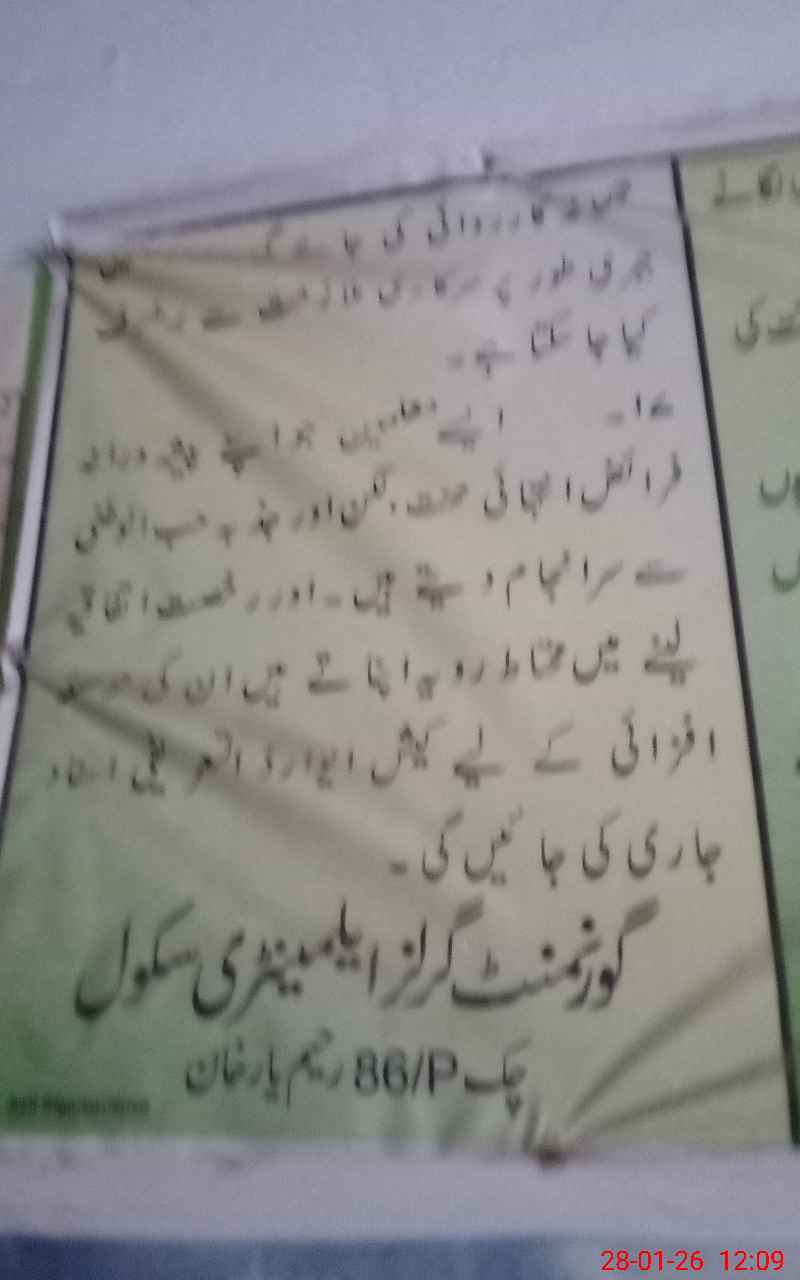 کارروائی کی جائے گی
جبری طور پر سرکاری ملازمت سے
کیا جا سکتا ہے۔
۱۷۔ ایسے معلمین جو اپنے پیشہ ورانہ
فرائض انتہائی محنت، لگن اور جذبہ حب الوطنی
سے سرانجام دیتے ہیں۔ اور رخصت اتفاقیہ
لینے میں محتاط رویہ اپناتے ہیں ان کی
افزائی کے لیے کیش ایوارڈ تعریفی اسناد
جاری کی جائیں گی۔
گورنمنٹ گرلز ایلیمینٹری سکول
چک 86/P رحیم یار خان
28-01-26 12:09